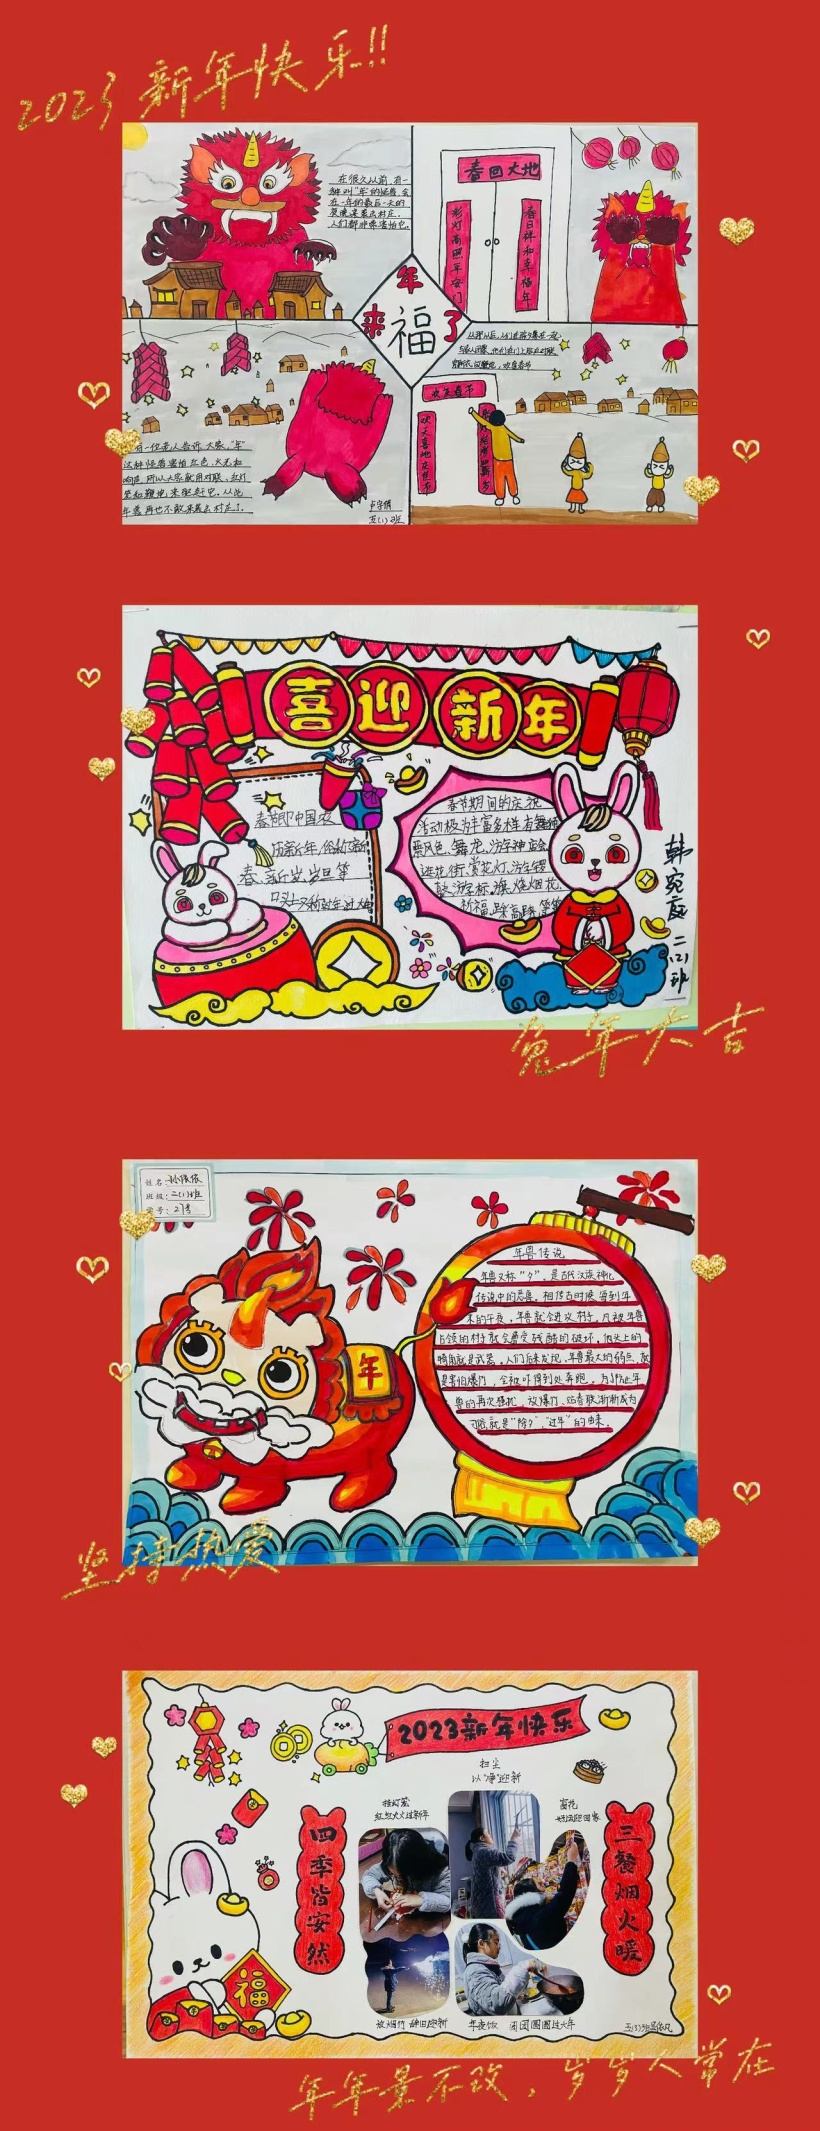 2023 新年快乐!!
在很久以前,有一
种叫"年"的怪兽,会
在一年的最后一天的
夜晚来袭击村庄,
人们都非常害怕它。
春回大地
彩灯高照平安门
春日祥和幸福年
年
来福了
从那以后,人们在除夕
欢度春节
欢天喜地度佳节
有一位老人告诉大家,"年"
这种怪兽害怕红色、火光和
响声,所以大家就用对联、红灯
笼和鞭炮,来驱赶它。从此
年兽再也不敢来袭击村庄了。
五(1)班
喜迎新年
春节即中国农
历新年,俗称新
春、新岁、岁旦等
口头上又称过年、过大年
春节期间的庆祝
活动极为丰富多样,有舞狮
飘色、舞龙、游神、庙会
逛花街、赏花灯、游锣
鼓、游标旗、烧烟花
祈福
韩宛庭 二(2)班
兔年大吉
姓名:
班级:二(1)班
学号:27号
年兽传说
年兽又称"夕",是古代汉族神化
传说中的恶兽。相传古时候,每到年
末的午夜,年兽就会进攻村子,凡被年兽
占领的村子就会遭受残酷的破坏,他头上的
犄角就是武器。人们后来发现,年兽最大的弱点,就
是害怕爆竹,全被吓得到处奔跑,为了防止年
兽的再次骚扰,放爆竹、贴春联渐渐成为
习俗,就是"除夕","过年"的由来。
年
坚持热爱
2023新年快乐
扫尘
以"净"迎新
挂灯笼
红红火火过新年
窗花
四季皆安然
三餐烟火暖
福
放烟竹 辞旧迎新
年夜饭 团团圆圆过大年
年年景不改,岁岁人常在